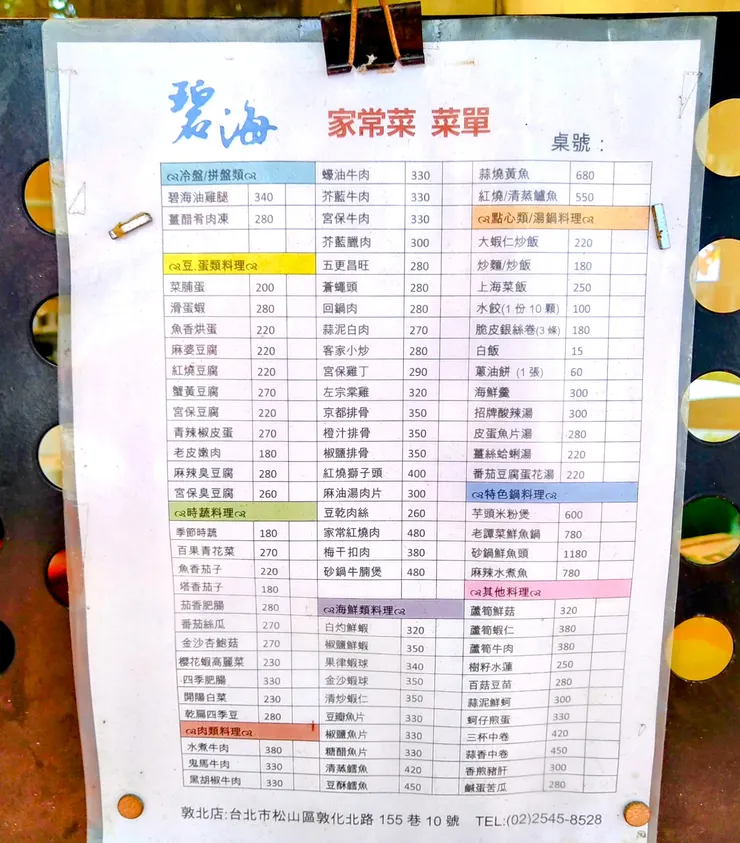 碧海 家常菜 菜單
桌號：
冷盤/拼盤類
碧海油雞腿 340
薑醋肴肉凍 280
豆.蛋類料理
菜脯蛋 200
滑蛋蝦 280
魚香烘蛋 220
麻婆豆腐 220
紅燒豆腐 220
蟹黃豆腐 270
宮保豆腐 220
青辣椒皮蛋 270
老皮嫩肉 180
麻辣臭豆腐 280
宮保臭豆腐 260
時蔬料理
季節時蔬 180
百果青花菜 270
魚香茄子 220
塔香茄子 180
茄香肥腸 280
番茄絲瓜 270
金沙杏鮑菇 270
櫻花蝦高麗菜 230
四季肥腸 330
開陽白菜 230
乾腸四季豆 280
肉類料理
水煮牛肉 380
鬼馬牛肉 330
黑胡椒牛肉 330
蠔油牛肉 330
芥藍牛肉 330
宮保牛肉 330
芥藍臘肉 300
五更昌旺 280
蒼蠅頭 280
回鍋肉 280
蒜泥白肉 270
客家小炒 280
宮保雞丁 290
左宗棠雞 320
京都排骨 350
橙汁排骨 350
椒鹽排骨 350
紅燒獅子頭 400
麻油湯肉片 300
豆乾肉絲 260
家常紅燒肉 480
梅干扣肉 380
砂鍋牛腩煲 480
海鮮類料理
白灼鮮蝦 320
椒鹽鮮蝦 350
果律蝦球 340
金沙蝦球 350
清炒蝦仁 350
豆瓣魚片 330
椒鹽魚片 330
糖醋魚片 330
清蒸鱈魚 420
豆酥鱈魚 450
蒜燒黃魚 680
紅燒/清蒸鱸魚 550
點心類/湯鍋料理
大蝦仁炒飯 220
炒麵/炒飯 180
上海菜飯 250
水餃(1 份 10 顆) 100
脆皮銀絲卷(3 條) 180
白飯 15
蔥油餅 (1 張) 60
海鮮羹 300
招牌酸辣湯 300
皮蛋魚片湯 280
薑絲蛤蜊湯 220
番茄豆腐蛋花湯 220
特色鍋料理
芋頭米粉煲 600
老譚菜鮮魚鍋 780
砂鍋鮮魚頭 1180
麻辣水煮魚 780
其他料理
蘆筍鮮菇 320
蘆筍蝦仁 380
蘆筍牛肉 380
樹籽水蓮 250
百菇豆苗 280
蒜泥鮮蚵 300
蚵仔煎蛋 330
三杯中卷 420
蒜香中卷 450
香煎豬肝 300
鹹蛋苦瓜 280
敦北店:台北市松山區敦化北路 155 巷 10 號 TEL:(02)2545-8528